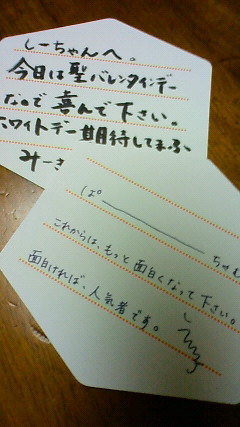 しーちゃんへ。
今日は聖バレンタインデー
なので喜んで下さい。
ホワイトデー期待してまふ
みーさ
ぱ
ちゃん
これからは、もっと面白くなって下さい。
面白ければ、人気者です。